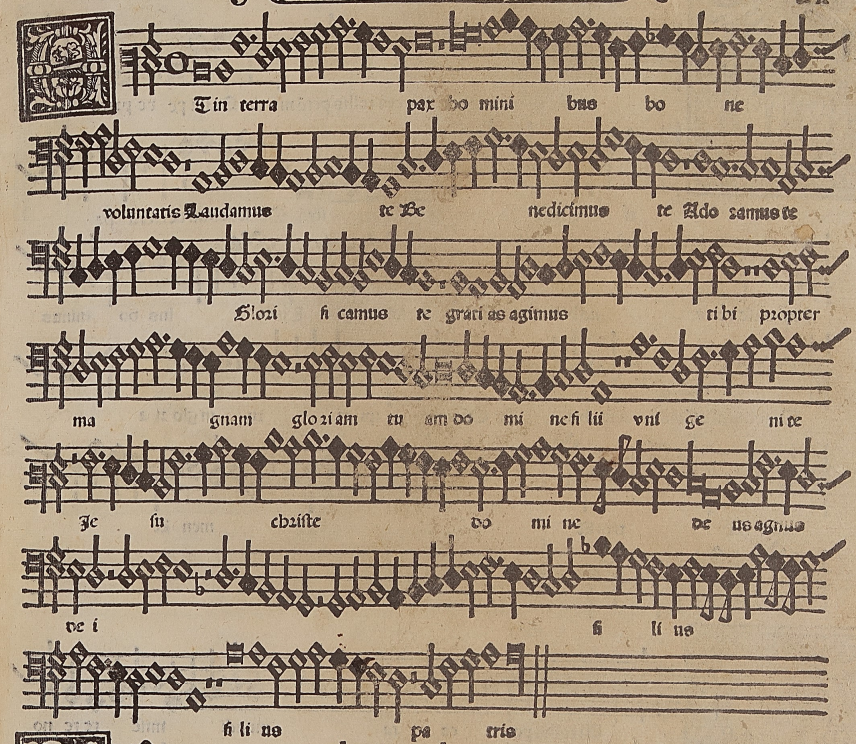 ET in terra pax ho mini bus bo ne
voluntatis Laudamus te Be nedicimus te Ado ramus te
Glori fi camus te grati as agimus ti bi propter
ma gnam gloriam tu am do mi ne fi lii vni ge ni te
Je su christe do mi ne de us agnus
de i fi li us
fi li us pa tris